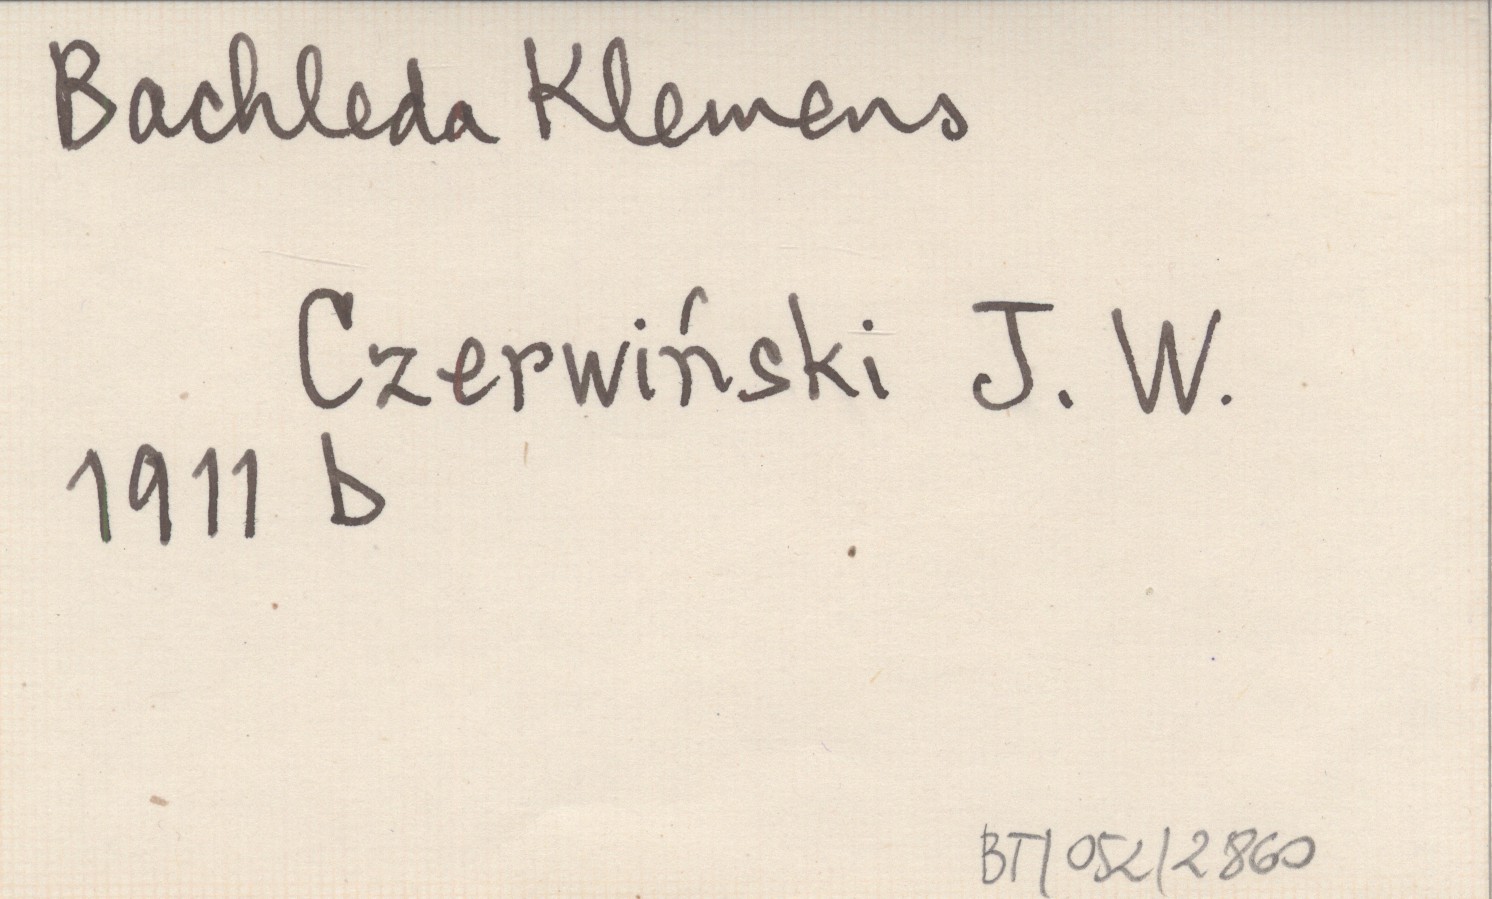 Bachleda Klemens
Czerwiński J. W.
1911 b
BT/052/2860